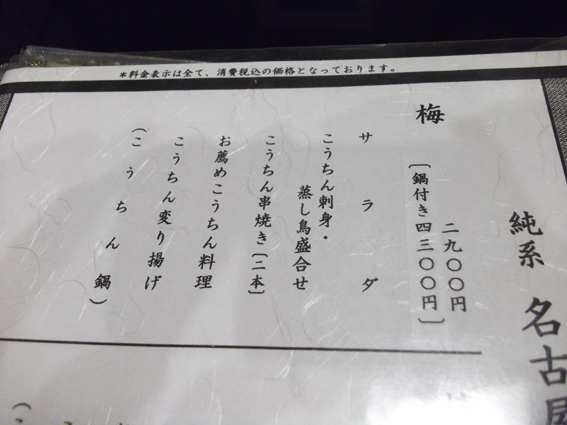 *料金表示は全て、消費税込の価格となっております。
純系 名古屋
梅
二九〇〇円
〔鍋付き四三〇〇円〕
サラダ
こうちん刺身・
蒸し鳥盛合せ
こうちん串焼き〔二本〕
お薦めこうちん料理
こうちん変り揚げ
(こうちん鍋)